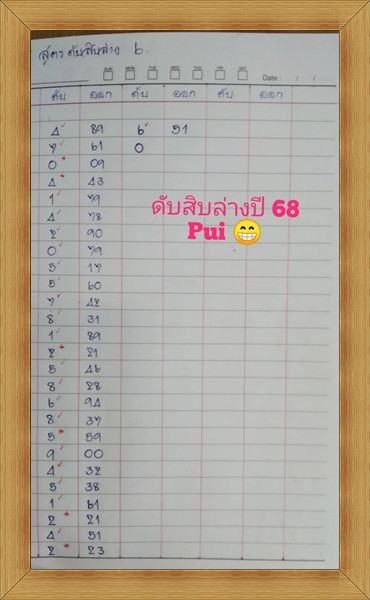 สูตร ดับสิบล่าง 6.
SUN MON TUE WED THU FRI SAT
Date : / /
ดับ ออก ดับ ออก ดับ ออก
4 89 6 51
7 61 0
0 09
4 43
1 79
4 78
2 90
0 79
5 17
5 60
7 42
8 31
1 89
2 21
5 46
8 28
6 94
8 37
5 59
9 00
4 32
5 38
1 61
2 21
4 51
2 23
ดับสิบล่างปี 68
Pui 😁